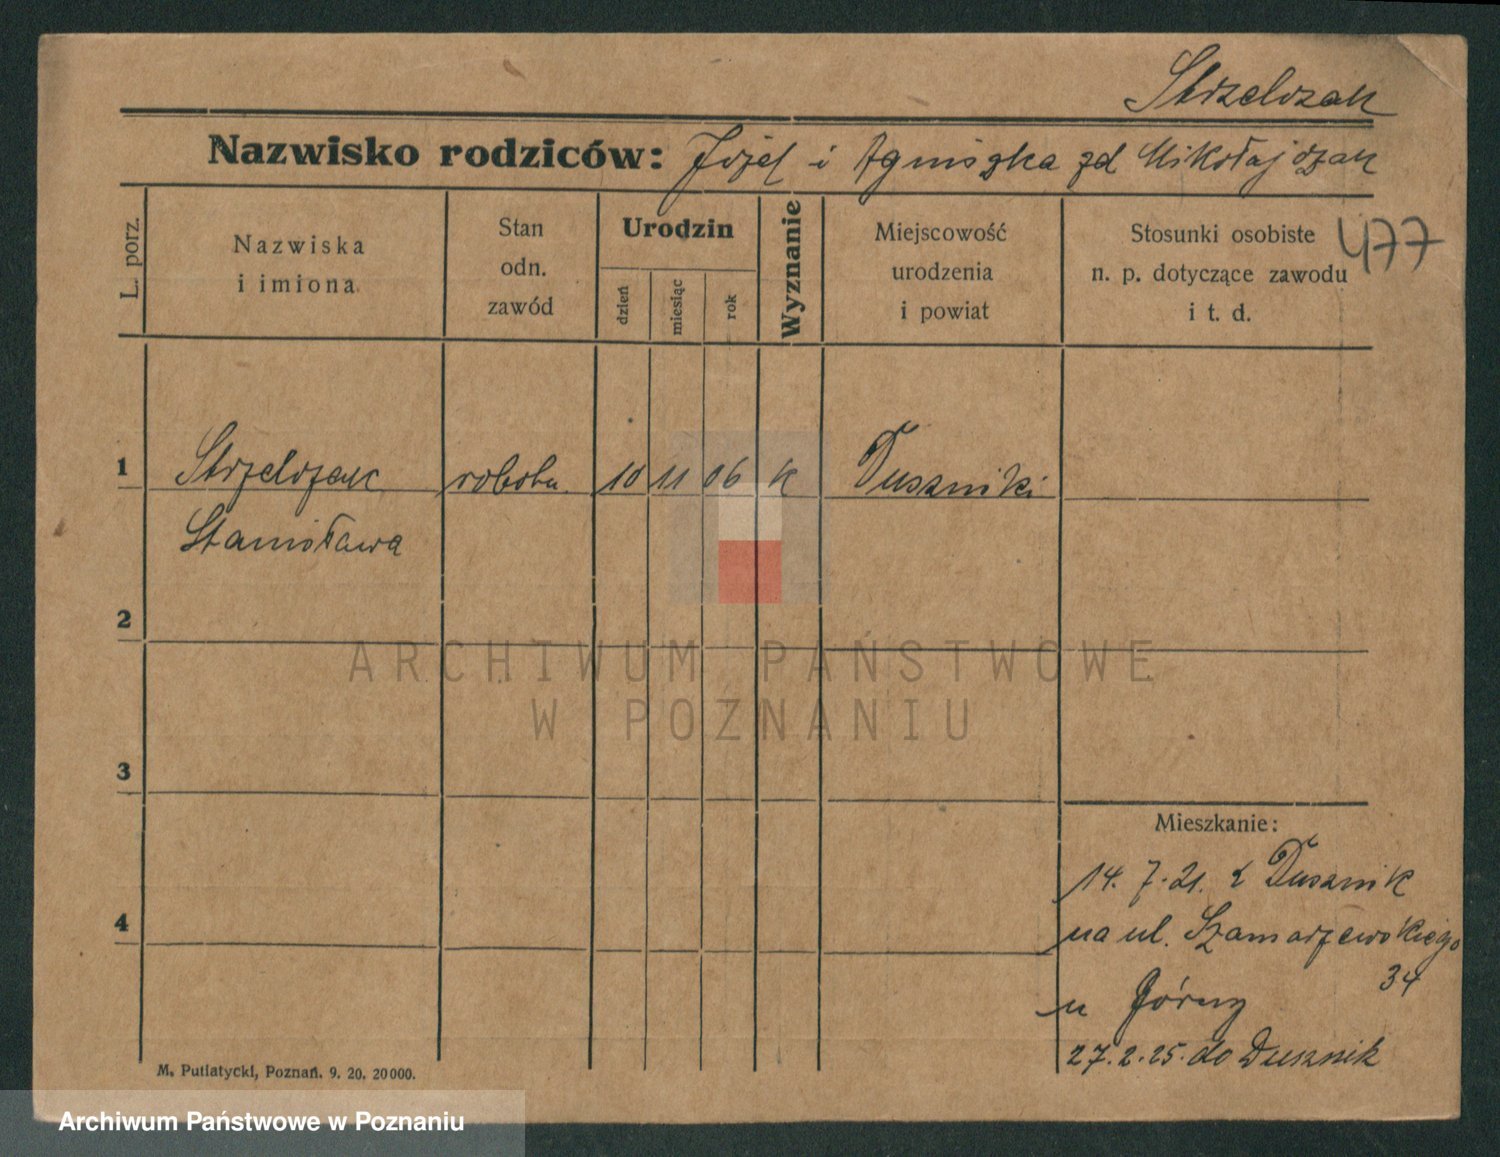 Strzelczak
Nazwisko rodziców: Józef i Agniszka zd Mikołajczak
477
L. porz.
Nazwiska
i imiona
Stan
odn.
zawód
Urodzin
dzień
miesiąc
rok
Wyznanie
Miejscowość
urodzenia
i powiat
Stosunki osobiste
n. p. dotyczące zawodu
i t. d.
1 Strzelczak robotn. 10 11 06 k Duszniki
Stanisława
2
3
4
Mieszkanie:
14. 7. 21. z Dusznik
na ul. Szamarzewskiego
34
u Górny
27. 2. 25. do Dusznik
M. Putiatycki, Poznań. 9. 20. 20000.
ARCHIWUM PAŃSTWOWE
W POZNANIU
Archiwum Państwowe w Poznaniu